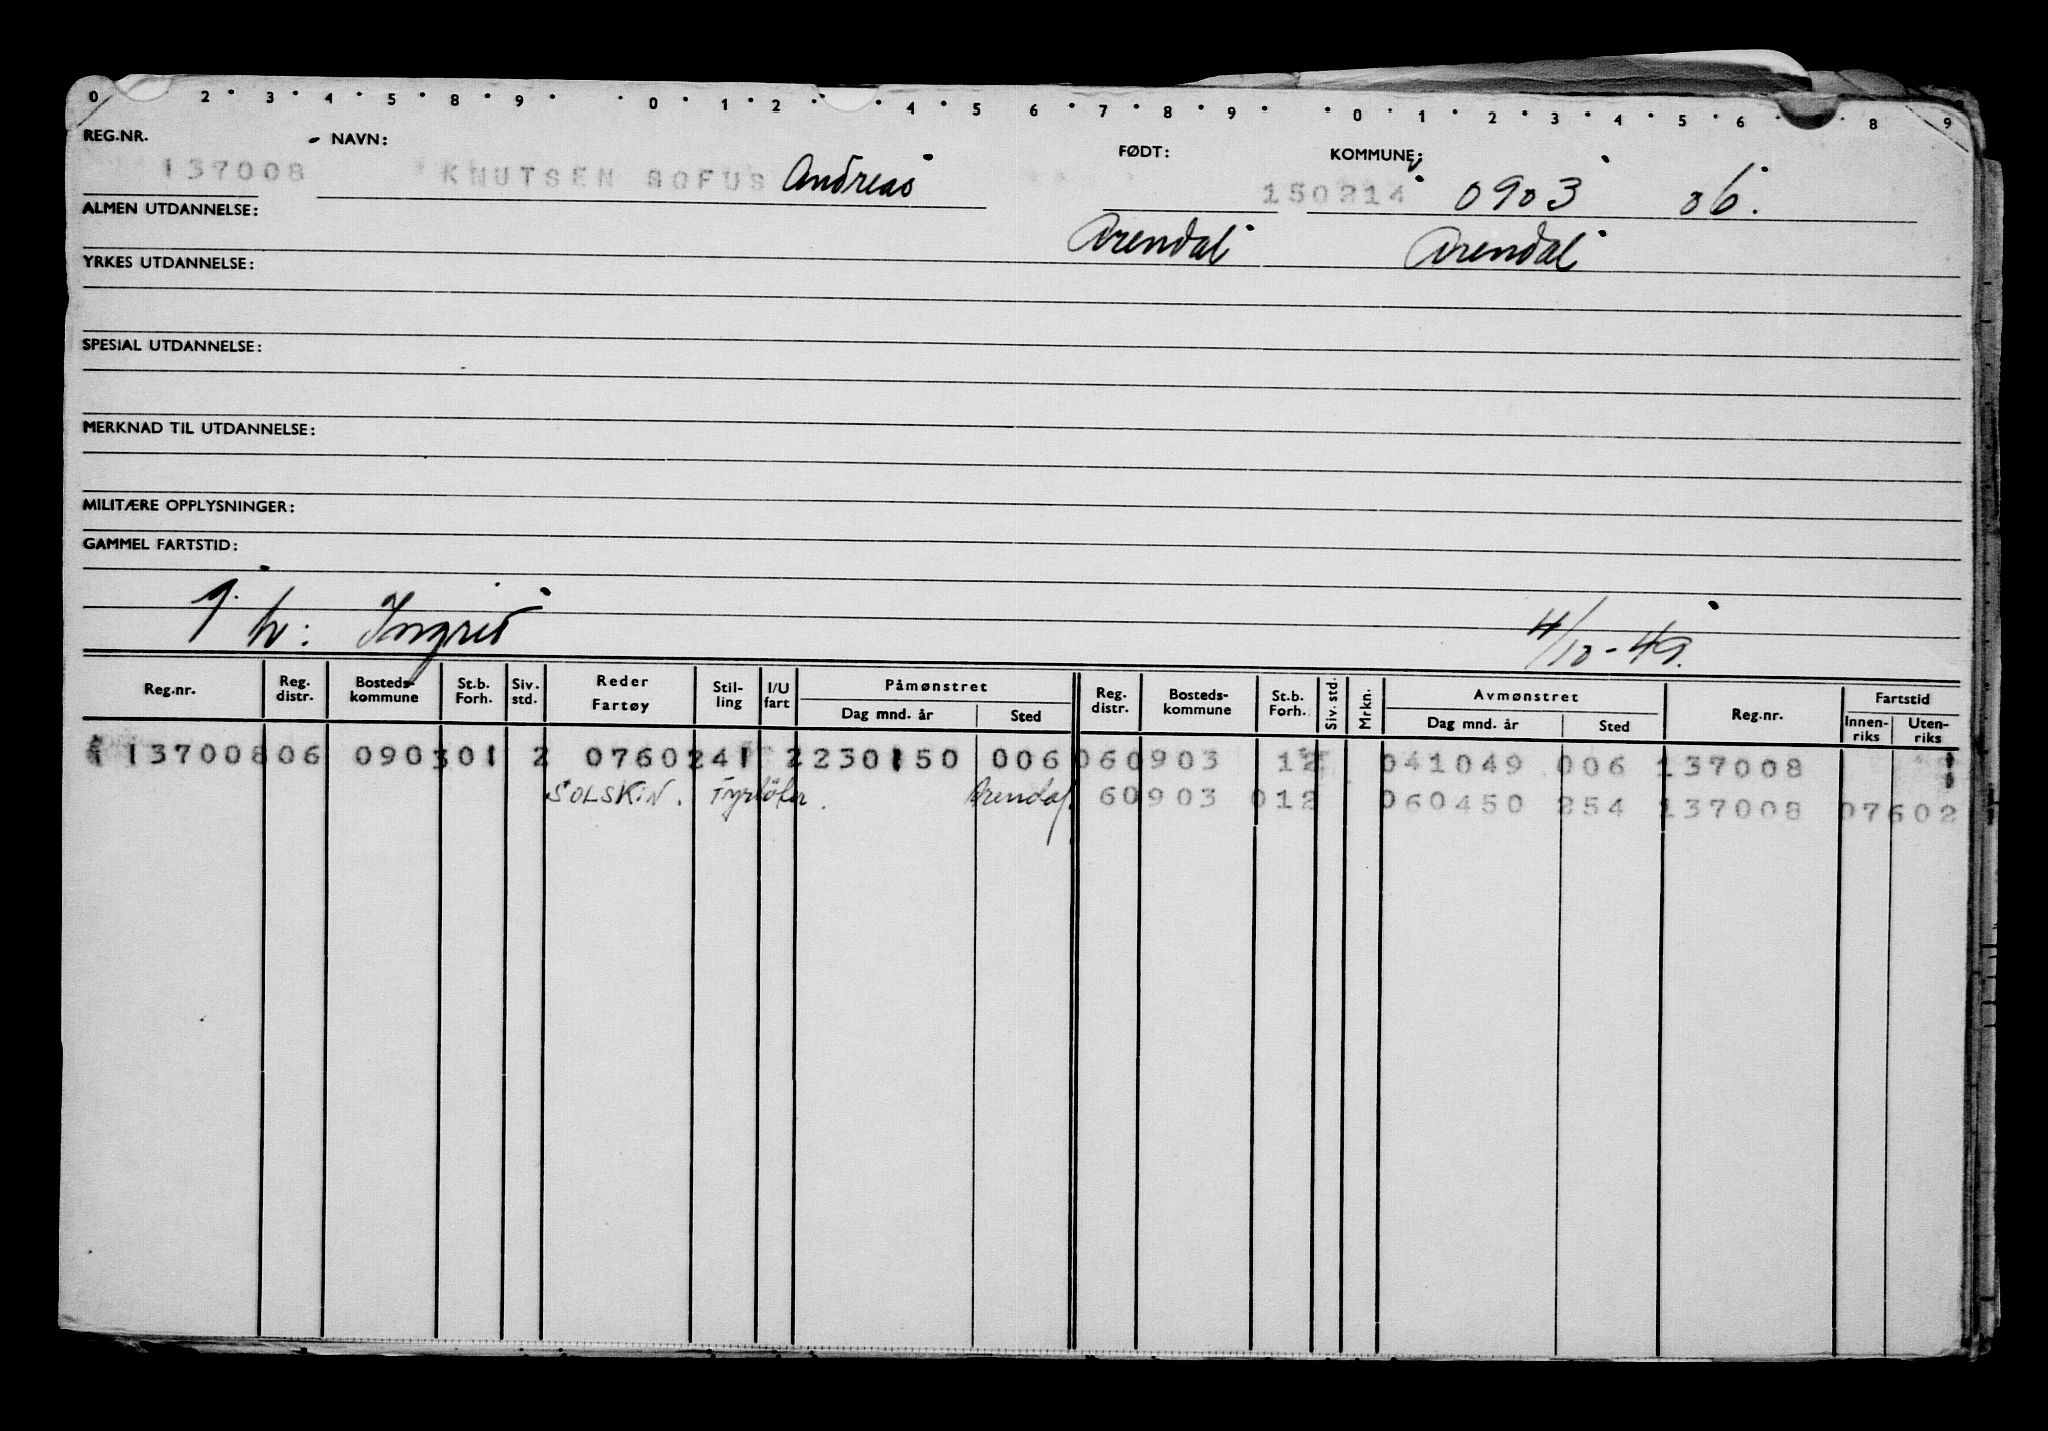 0 2 3 4 5 8 9 0 1 2 4 5 6 7 8 9 0 1 2 3 4 5 6 8 9
REG.NR. NAVN: FØDT: KOMMUNE:
137008 KNUTSEN SOFUS Andreas 150214 0903 06.
ALMEN UTDANNELSE: Arendal Arendal
YRKES UTDANNELSE:
SPESIAL UTDANNELSE:
MERKNAD TIL UTDANNELSE:
MILITÆRE OPPLYSNINGER:
GAMMEL FARTSTID:
Ingrid 4/10-49.
Reg.nr. Reg. distr. Bosteds- kommune St.b. Forh. Siv. std. Reder Fartøy Stil- ling I/U fart Påmønstret Dag mnd. år Sted Reg. distr. Bosteds- kommune St.b. Forh. Siv. std. Mrkn. Avmønstret Dag mnd. år Sted Reg.nr. Fartstid Innen- riks Uten- riks
137008 06 0903 01 2 07602 41 2 230150 006 06 0903 12 041049 006 137008
SOLSKIN. Fyrböter. Arendal. 6 0903 012 060450 254 137008 07602